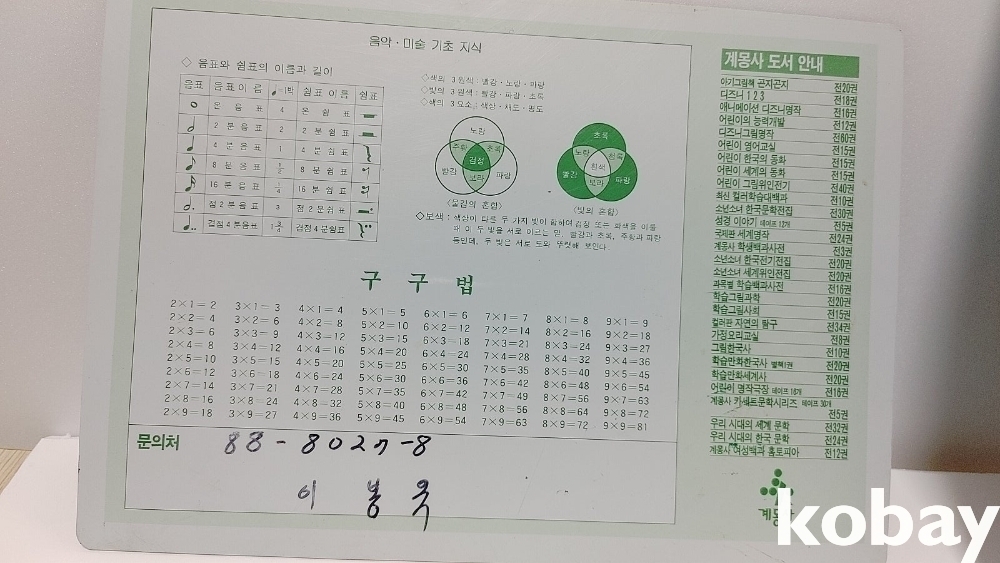 음악·미술 기초 지식
◇ 음표와 쉼표의 이름과 길이
음표 음표이름 ♩=1박 쉼표이름 쉼표
온 음 표 4 온 쉼 표
2 분 음 표 2 2 분 쉼 표
4 분 음 표 1 4 분 쉼 표
8 분 음 표 1/2 8 분 쉼 표
16 분 음 표 1/4 16 분 쉼 표
점 2 분 음 표 3 점 2 분 쉼 표
겹점 4 분음표 1 3/4 겹점 4 분쉼표
◇색의 3원색 : 빨강·노랑·파랑
◇빛의 3원색 : 빨강·파랑·초록
◇색의 3요소 : 색상·채도·명도
노랑
주황 초록
검정
빨강 보라 파랑
〈물감의 혼합〉
초록
노랑 청록
흰색
빨강 보라 파랑
〈빛의 혼합〉
◇보색 : 색상이 다른 두 가지 빛이 합하여 검정 또는 회색을 이룰
때 이 두 빛을 서로 이르는 말. 빨강과 초록, 주황과 파랑
등인데, 두 빛은 서로 도와 뚜렷해 보인다.
구 구 법
2×1=2 3×1=3 4×1=4 5×1=5 6×1=6 7×1=7 8×1=8 9×1=9
2×2=4 3×2=6 4×2=8 5×2=10 6×2=12 7×2=14 8×2=16 9×2=18
2×3=6 3×3=9 4×3=12 5×3=15 6×3=18 7×3=21 8×3=24 9×3=27
2×4=8 3×4=12 4×4=16 5×4=20 6×4=24 7×4=28 8×4=32 9×4=36
2×5=10 3×5=15 4×5=20 5×5=25 6×5=30 7×5=35 8×5=40 9×5=45
2×6=12 3×6=18 4×6=24 5×6=30 6×6=36 7×6=42 8×6=48 9×6=54
2×7=14 3×7=21 4×7=28 5×7=35 6×7=42 7×7=49 8×7=56 9×7=63
2×8=16 3×8=24 4×8=32 5×8=40 6×8=48 7×8=56 8×8=64 9×8=72
2×9=18 3×9=27 4×9=36 5×9=45 6×9=54 7×9=63 8×9=72 9×9=81
문의처 88-8027-8
이 봉 욱
계몽사 도서 안내
아기그림책 곤지곤지 전20권
디즈니 1 2 3 전18권
애니메이션 디즈니명작 전16권
어린이의 능력개발 전12권
디즈니그림명작 전60권
어린이 영어교실 전15권
어린이 한국의 동화 전15권
어린이 세계의 동화 전15권
어린이 그림위인전기 전40권
최신 컬러학습대백과 전10권
소년소녀 한국문학전집 전30권
성경 이야기 테이프 12개 전5권
국제판 세계명작 전24권
계몽사 학생백과사전 전3권
소년소녀 한국전기전집 전20권
소년소녀 세계위인전집 전20권
과목별 학습백과사전 전16권
학습그림과학 전20권
학습그림사회 전15권
컬러판 자연의 탐구 전34권
가정요리교실 전8권
그림한국사 전10권
학습만화한국사 별책1권 전20권
학습만화세계사 전20권
어린이 명작극장 테이프 16개 전16권
계몽사 카세트문학시리즈 테이프 30개
전5권
우리 시대의 세계 문학 전32권
우리 시대의 한국 문학 전24권
계몽사 여성백과 홈토피아 전12권
계몽사
kobay